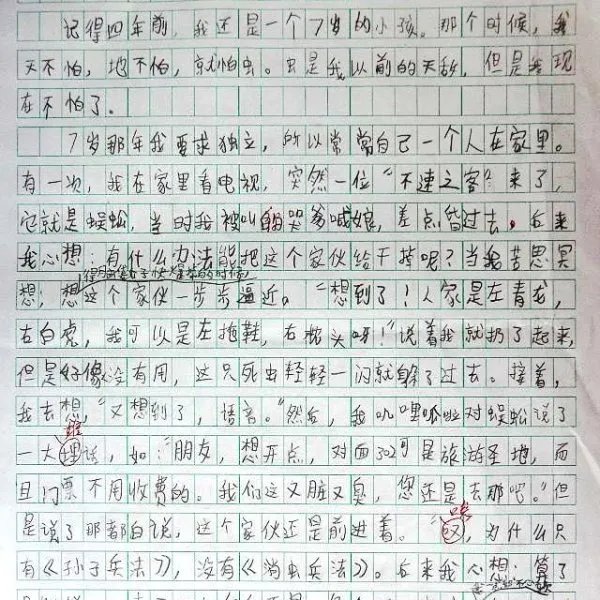 记得四年前，我还是一个7岁的小孩。那个时候，我
天不怕，地不怕，就怕虫。虫是我以前的天敌，但是我现
在不怕了．
7岁那年我要求独立，所以常常自己一个人在家里。
有一次，我在家里看电视，突然一位“不速之客”来了，
它就是蜈蚣，当时我被吓的哭爹喊娘，差点昏过去。后来
我心想：有什么办法能把这个家伙给干掉呢？当我苦思冥
想，想这个家伙一步步逼近。“想到了！人家是左青龙，
右白虎，我可以是左拖鞋，右枕头呀！”说着我就扔了起来，
但是好像没有用，这只死虫轻轻一闪就躲了过去。接着，
我去想，“又想到了，语言。”然后，我叽哩呱啦对蜈蚣说了
堆
一大理话，如：“朋友，想开点，对面302可是旅游圣地，而
且门票不用收费的。我们这又脏又臭，您还是去那吧。”但
是说了那都白说，这个家伙还是前进着。
，为什么只
有《孙子兵法》，没有《消虫兵法》。后来我心想：算了